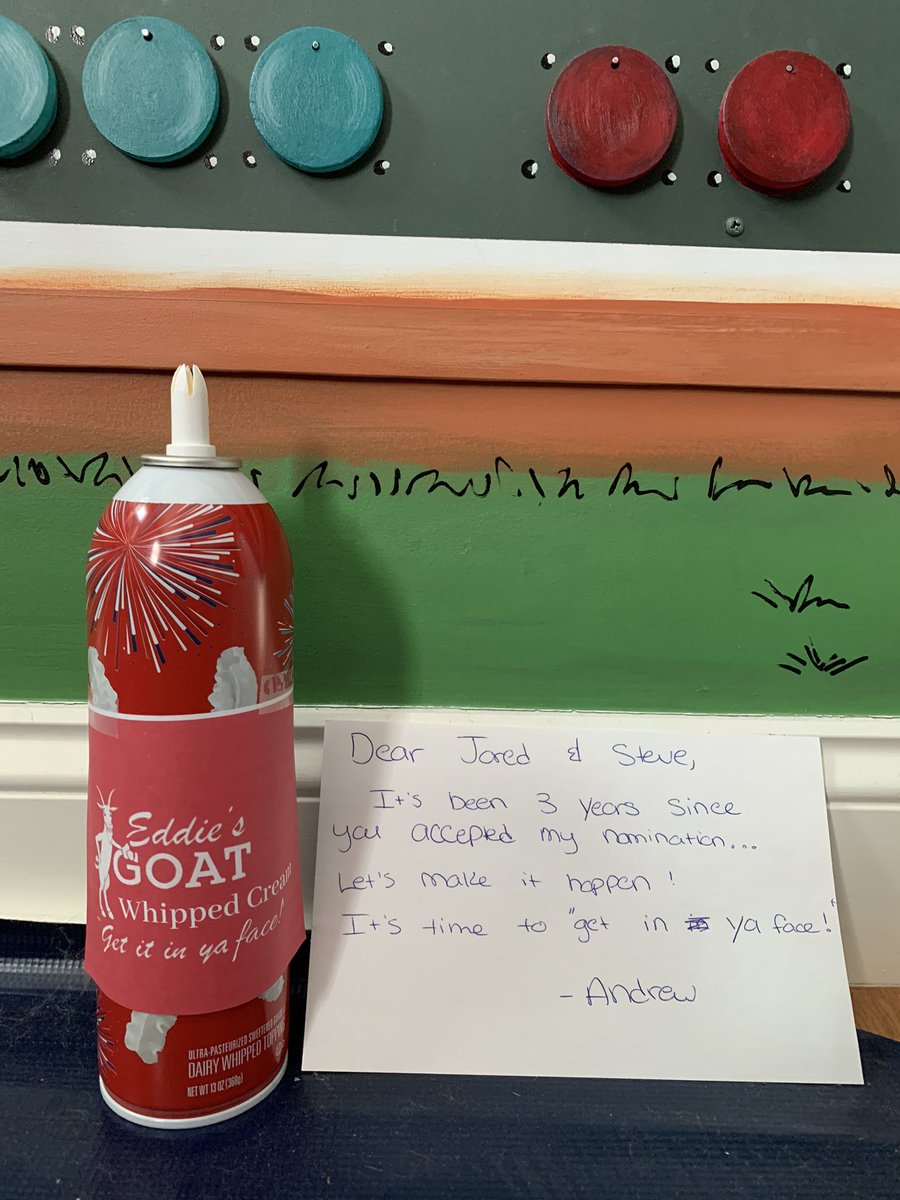 Eddie's
GOAT
Whipped Cream
Get it in ya face!
ULTRA-PASTEURIZED SWEETENED
DAIRY WHIPPED TOPPING
NET WT 13 OZ (368g)
Dear Jared & Steve,
It's been 3 years since
you accepted my nomination...
Let's make it happen!
It's time to "get in ya face!"
- Andrew